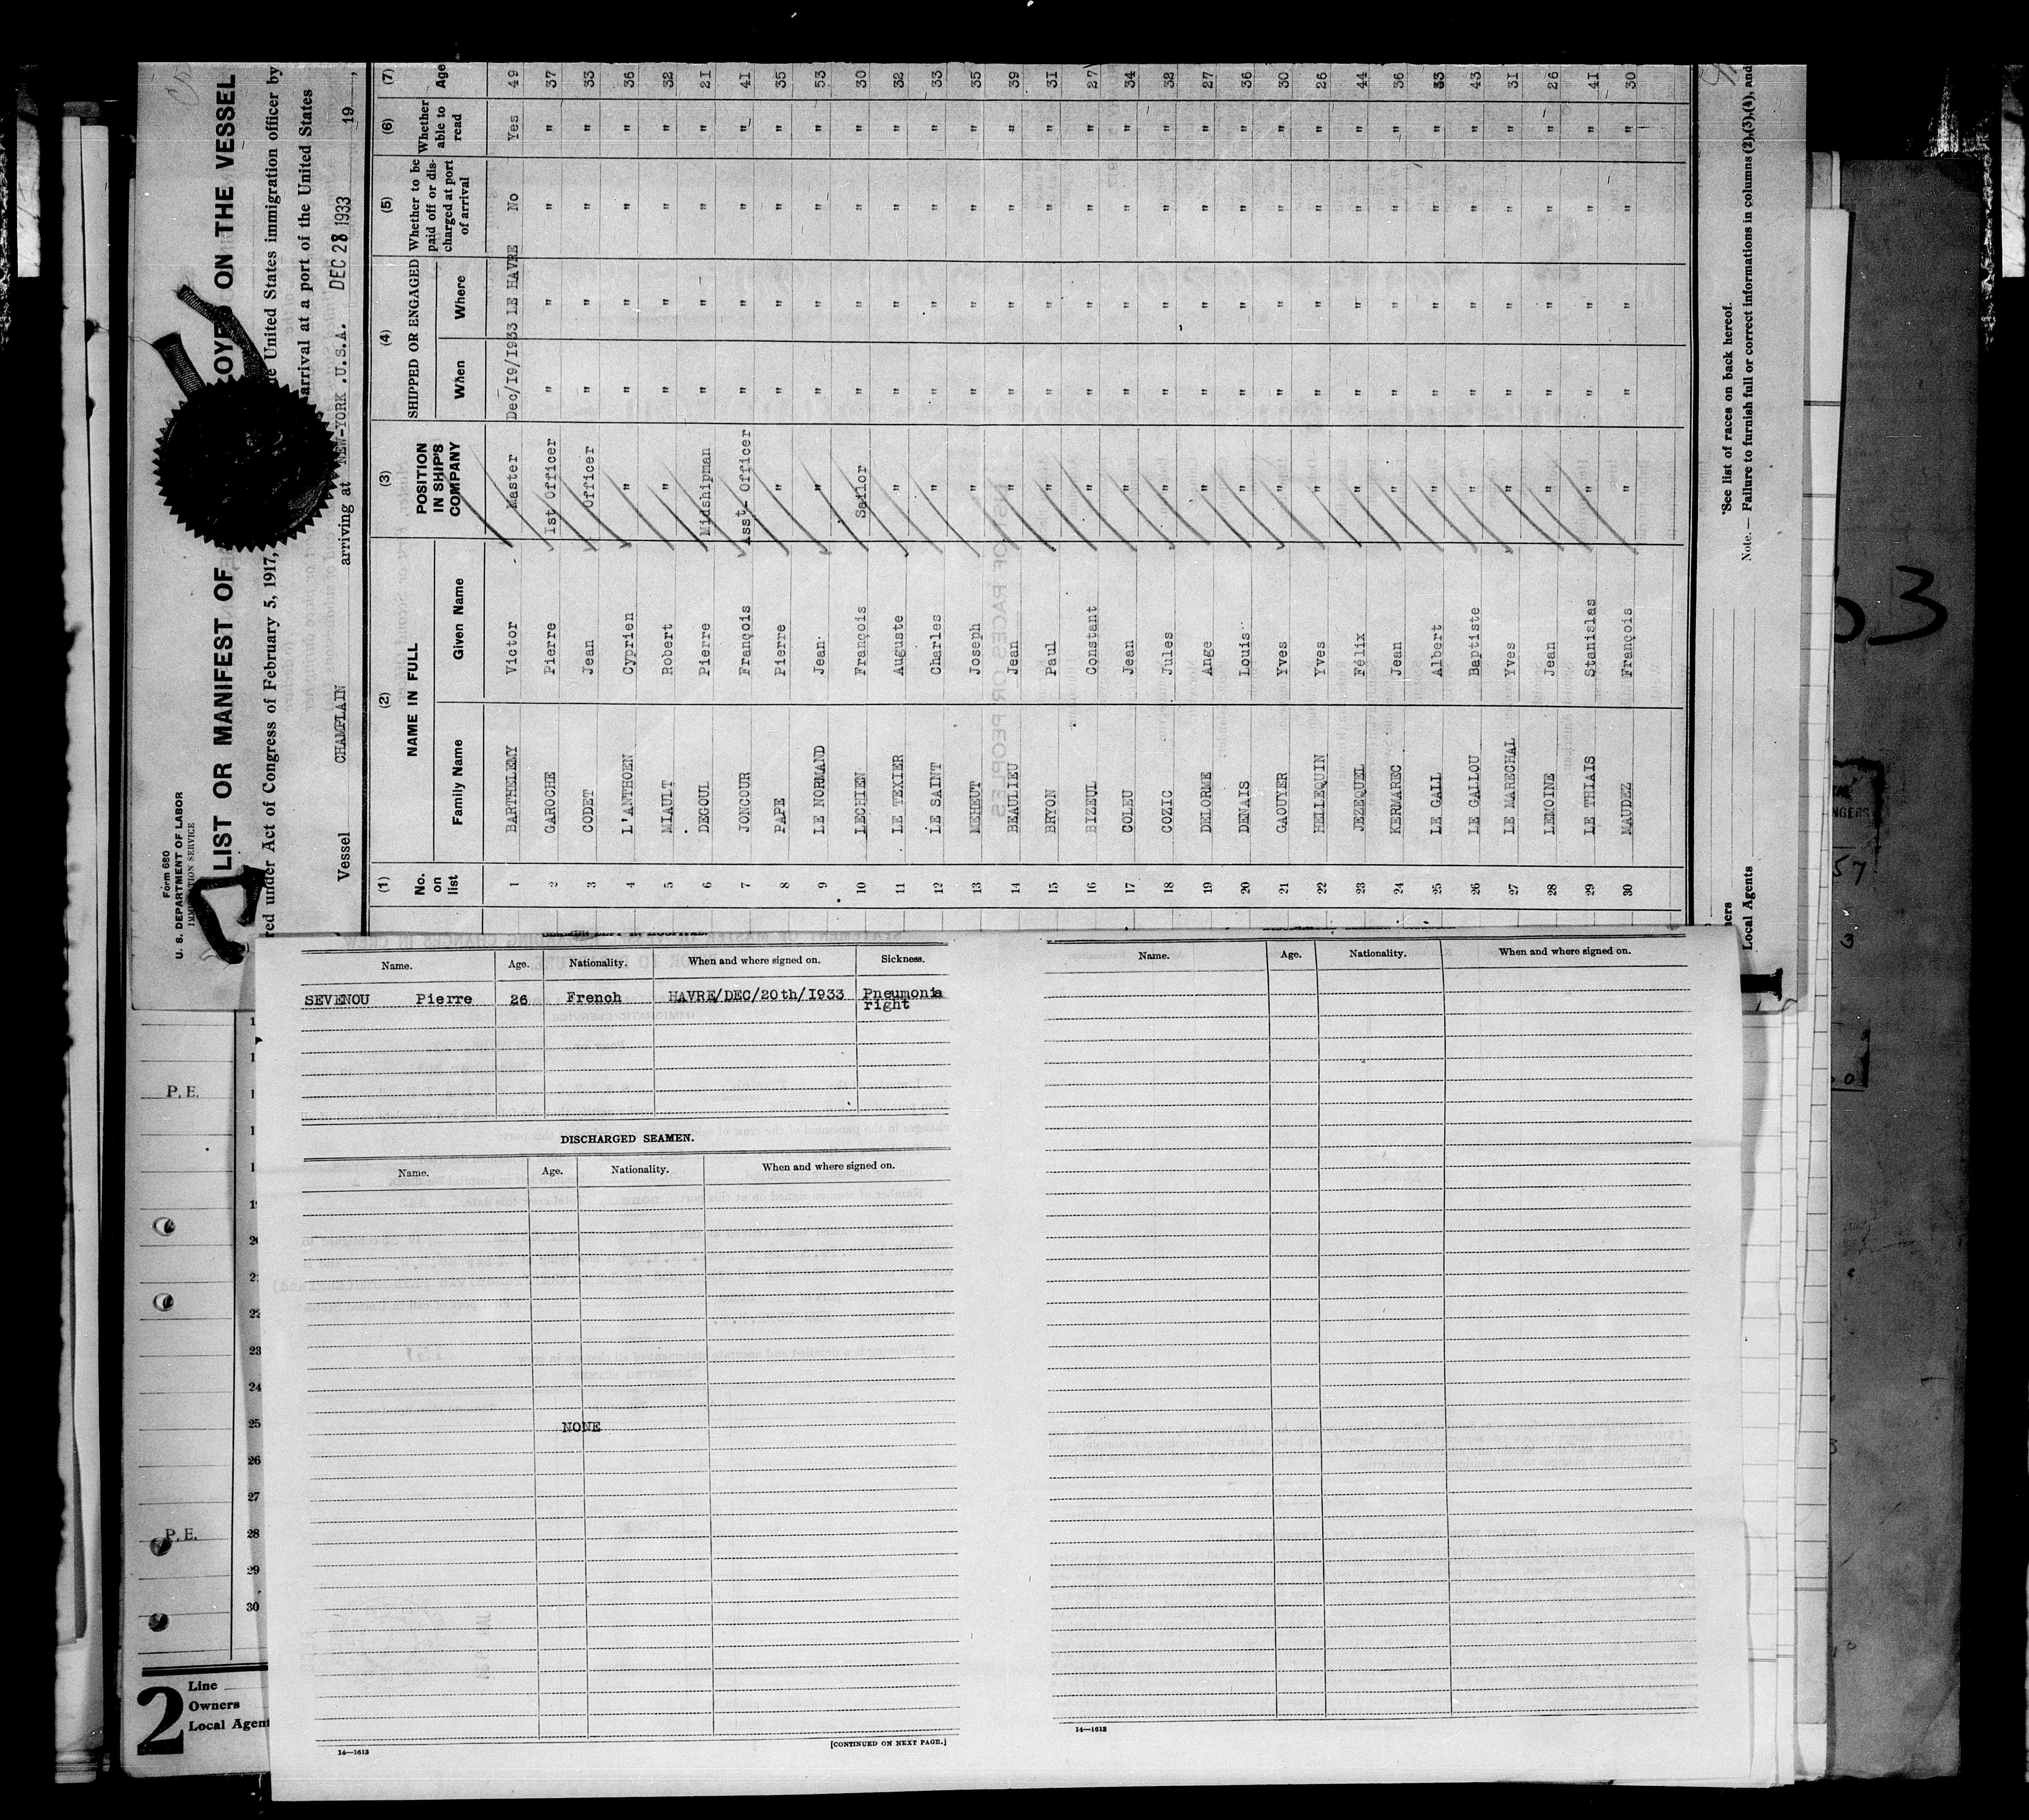 Form 680
U. S. DEPARTMENT OF LABOR
IMMIGRATION SERVICE
LIST OR MANIFEST OF ON THE VESSEL
red under Act of Congress of February 5, 1917, United States immigration officer by
arrival at a port of the United States
Vessel CHAMPLAIN arriving at NEW-YORK .U.S.A. DEC 28 1933 19
(1) (2) (3) (4) (5) (6) (7)
No. on list
NAME IN FULL
Family Name Given Name
POSITION IN SHIP'S COMPANY
SHIPPED OR ENGAGED
When Where
Whether to be paid off or discharged at port of arrival
Whether able to read
Age
1 BARTHELEMY Victor Master Dec/I9/I933 LE HAVRE No Yes 49
2 GAROCHE Pierre Ist Officer " " " " 37
3 CODET Jean Officer " " " " 33
4 L'ANTHOEN Cyprien " " " " " 36
5 MIAULT Robert " " " " " 32
6 DEGOUL Pierre Midshipman " " " " 21
7 JONCOUR François Asst- Officer " " " " 41
8 PAPE Pierre " " " " " 35
9 LE NORMAND Jean " " " " " 53
10 LECHIEN François Sailor " " " " 30
11 LE TEXIER Auguste " " " " " 32
12 LE SAINT Charles " " " " " 33
13 MEHEUT Joseph " " " " " 35
14 BEAULIEU Jean " " " " " 39
15 BRYON Paul " " " " " 31
16 BIZEUL Constant " " " " " 27
17 COLEU Jean " " " " " 34
18 COZIC Jules " " " " " 32
19 DELORME Ange " " " " " 27
20 DENAIS Louis " " " " " 36
21 GAOUYER Yves " " " " " 30
22 HELLEQUIN Yves " " " " " 26
23 JEZEQUEL Félix " " " " " 44
24 KERMAREC Jean " " " " " 36
25 LE GALL Albert " " " " " 33
26 LE GALLOU Baptiste " " " " " 43
27 LE MARECHAL Yves " " " " " 31
28 LEMOINE Jean " " " " " 26
29 LE THIAIS Stanislas " " " " " 41
30 MAUDEZ François " " " " " 30
*See list of races on back hereof.
Note.— Failure to furnish full or correct informations in columns (2),(3),(4), and
Local Agents
Name. Age. Nationality. When and where signed on. Sickness.
SEVENOU Pierre 26 French HAVRE/DEC/20th/I933 Pneumonia
right
DISCHARGED SEAMEN.
Name. Age. Nationality. When and where signed on.
NONE
14—1613
[CONTINUED ON NEXT PAGE.]
Name. Age. Nationality. When and where signed on.
14—1613
P. E.
P. E.
21
22
23
24
25
26
27
28
29
30
2
Line
Owners
Local Agent
53
57
3